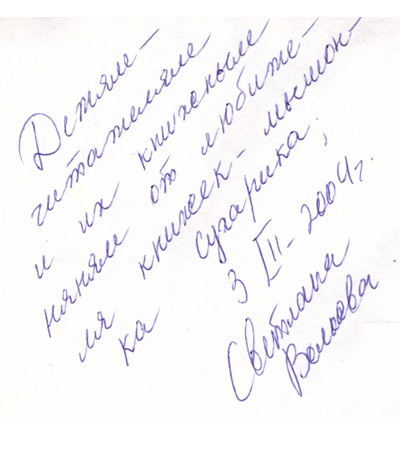 Детям –
читателям
и их книжным
няням от любите-
ля книжек – мышон-
ка сухарика,
3 III – 2004 г.
Светлана